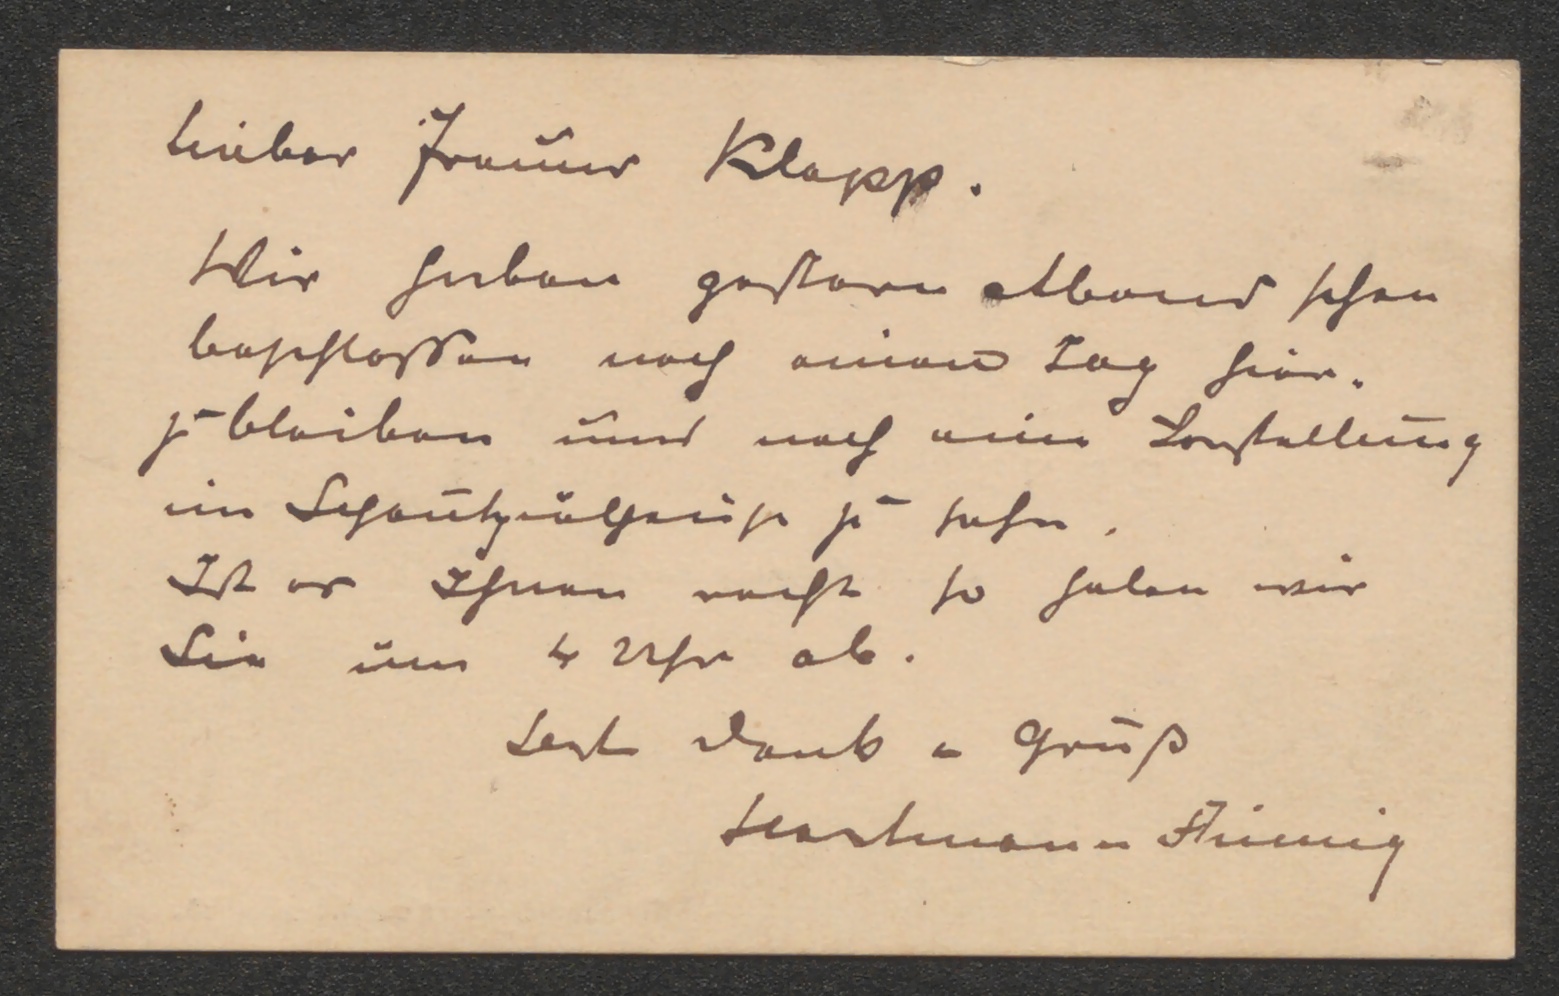 Lieber Freund Klapp.
Wir haben gestern Abend schon
beschlossen noch einen Tag hier.
zu bleiben und noch eine Vorstellung
im Schauspielhause zu sehn.
Ist es Ihnen recht so holen wir
Sie um 4 Uhr ab.
Best Dank u Gruß
Hartmann